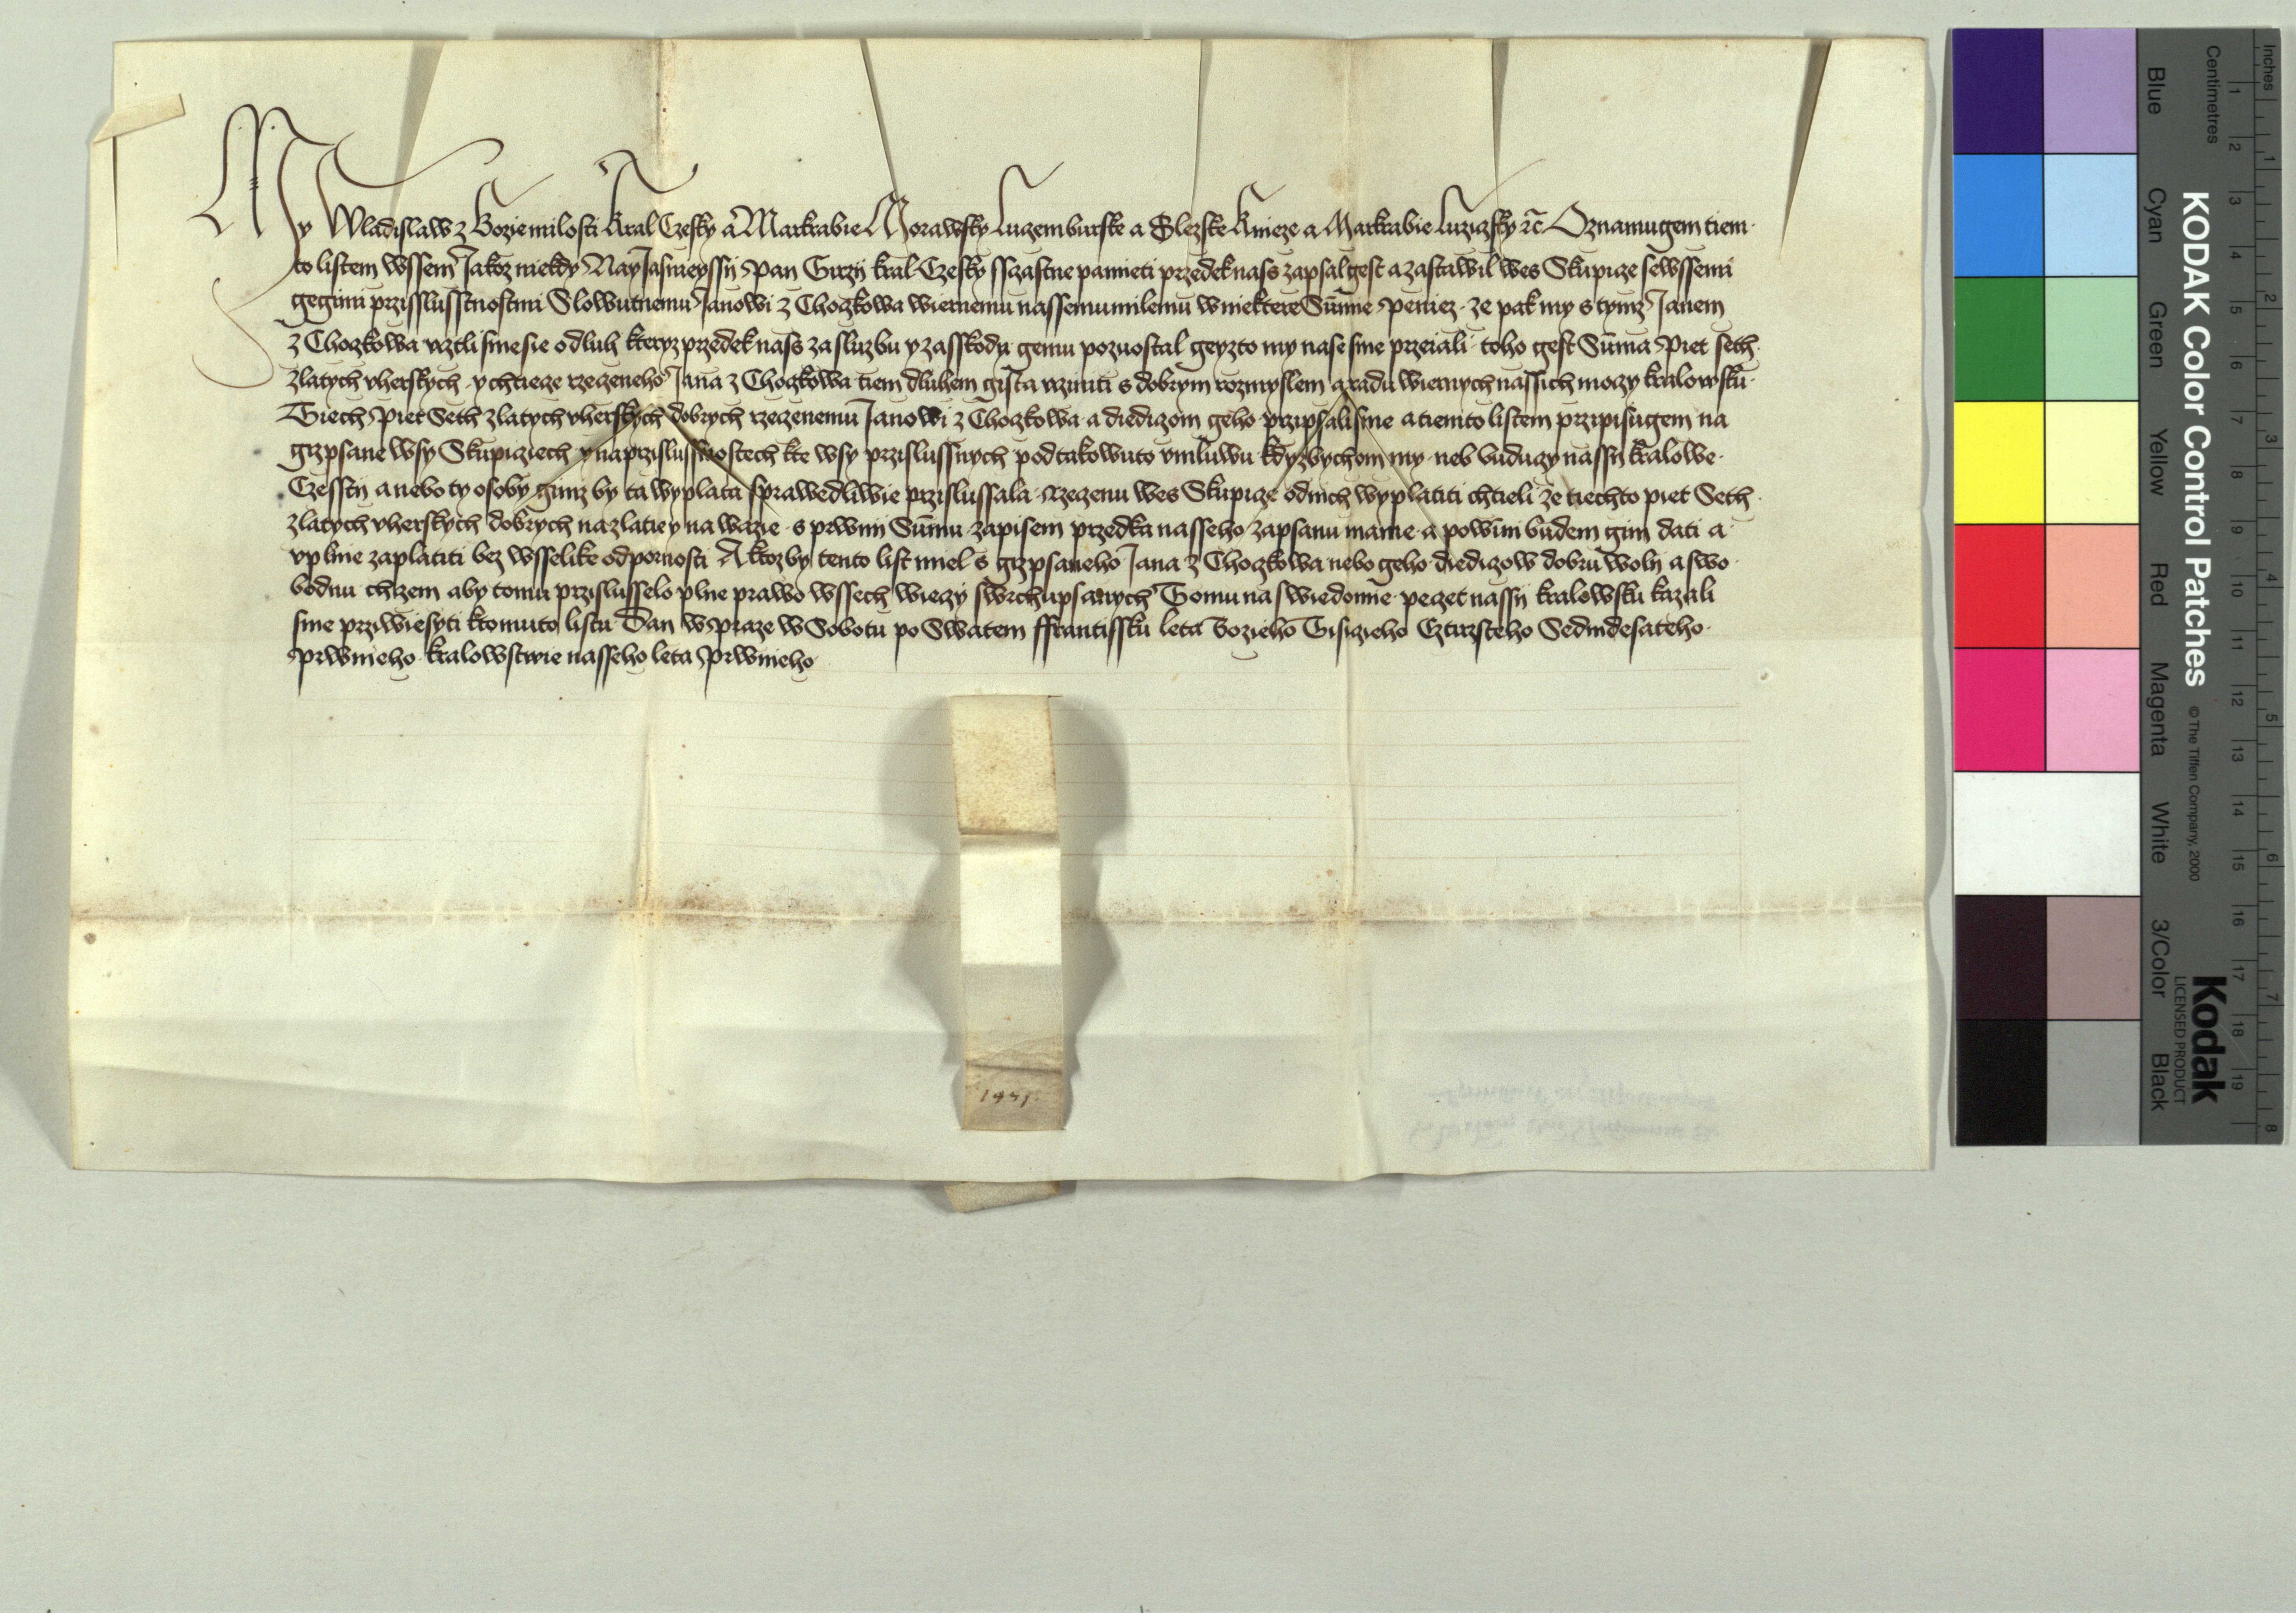 My Wladislaw z Bozie milosti Kral Czesky a Markrabie Morawsky Luczemburske a Slezske Knieze a Markrabie Luziczsky ꝛc̃ Oznamugem tiem
to listem wssem Jakoz niekdy Nayjasnieyssij Pan Girzij kral Czesky sstzastne pamieti przedek nass zapsal gest a zastawil wes Skupicze sewssemi
gegimi przisslusstnostmi Slowutnemu Janowi z Choczkowa wiernemu nassemu milemu w niektere Sum̃ie Peniez ze pak my s tymz Janem
z Choczkowa vztli smesie o dluh kteryz przedek nass za sluzbu y za sskodu gemu pozuostal geyzto my na se sme przeiali toho gest Sum̃a Piet seth
zlatych vherskych y chtiecze rzeczeneho Jana z Choczkowa tiem dluhem gista vcziniti s dobrym rozmyslem a radu wiernych nassich moczy kralowsku
Tiech Piet Seth zlatych vherskych dobrych rzeczenemu Janowi z Choczkowa a diediczom geho przipsali sme a tiemto listem przipisugem na
gizpsane wsy Skupicziech y na przislussnostech k te wsy przislussnych pod takowuto vmluwu kdyzbychom my neb buduczy nassij kralowe
Czesstij a nebo ty osoby gimz by ta wyplata sprawedliwie przislussala rzeczenu wes Skupicze od nich wyplatiti chtieli ze tiechto piet Seth
zlatych vherskych dobrych na zlatie y na wazie s prwnij Sum̃u zapisem przedka nasseho zapsanu mame a powini budem gim dati a
vplnie zaplatiti bez wsselike odpornosti A ktozby tento list miel s gizpsaneho Jana z Choczkowa nebo geho diediczow dobru woli a swo
bodnu chczem aby tomu przislusselo plne prawo wssech wieczy swrchupsanych Tomu na swiedomie peczet nassij kralowsku kazali
sme przwiesyti k tomuto listu Dan w Praze w Sobotu po Swatem ffrantissku leta Bozieho Tisiczieho Cztirzsteho Sedmdesateho
Prwnieho kralowstwie nasseho leta Prwnieho
1471
KODAK Color Control Patches
© The Tiffen Company, 2000
Kodak
LICENSED PRODUCT
Blue
Cyan
Green
Yellow
Red
Magenta
White
3/Color
Black
Inches
1 2 3 4 5 6 7 8
Centimetres
1 2 3 4 5 6 7 8 9 10 11 12 13 14 15 16 17 18 19